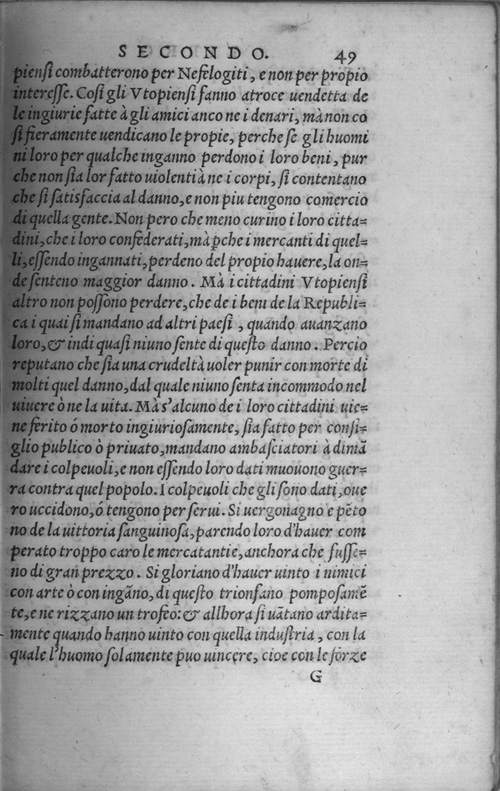 SECONDO. 49
piensi combatterono per Nefelogiti, e non per propio
interesse. Cosi gli Vtopiensi fanno atroce uendetta de
le ingiurie fatte à gli amici anco ne i denari, mà non co
si fieramente uendicano le propie, perche se gli huomi
ni loro per qualche inganno perdono i loro beni, pur
che non sia lor fatto uiolenti à ne i corpi, si contentano
che si satisfaccia al danno, e non piu tengono comercio
di quella gente. Non pero che meno curino i loro citta=
dini, che i loro confederati, mà ꝑche i mercanti di quel=
li, essendo ingannati, perdeno del propio hauere, la on=
de senteno maggior danno. Mà i cittadini Vtopiensi
altro non possono perdere, che de i beni de la Republi=
ca i quai si mandano ad altri paesi, quando auanzano
loro, & indi quasi niuno sente di questo danno. Percio
reputano che sia una crudeltà uoler punir con morte di
molti quel danno, dal quale niuno senta incommodo nel
uiuere ò ne la uita. Mà s'alcuno de i loro cittadini uie=
ne ferito ó morto ingiuriosamente, sia fatto per consi=
glio publico ò priuato, mandano ambasciatori à dimã
dare i colpeuoli, e non essendo loro dati muouono guer=
ra contra quel popolo. I colpeuoli che gli sono dati, oue
ro uccidono, ó tengono per serui. Si uergognano e pẽto
no de la uittoria sanguinosa, parendo loro d'hauer com
perato troppo caro le mercatantie, anchora che susse=
no di gran prezzo. Si gloriano d'hauer uinto i nimici
con arte ò con ingãno, di questo trionfano pomposamẽ
te, e ne rizzano un trofeo: & allhora si uãtano ardita=
mente quando hanno uinto con quella industria, con la
quale l'huomo solamente puo uincere, cioe con le forze
G